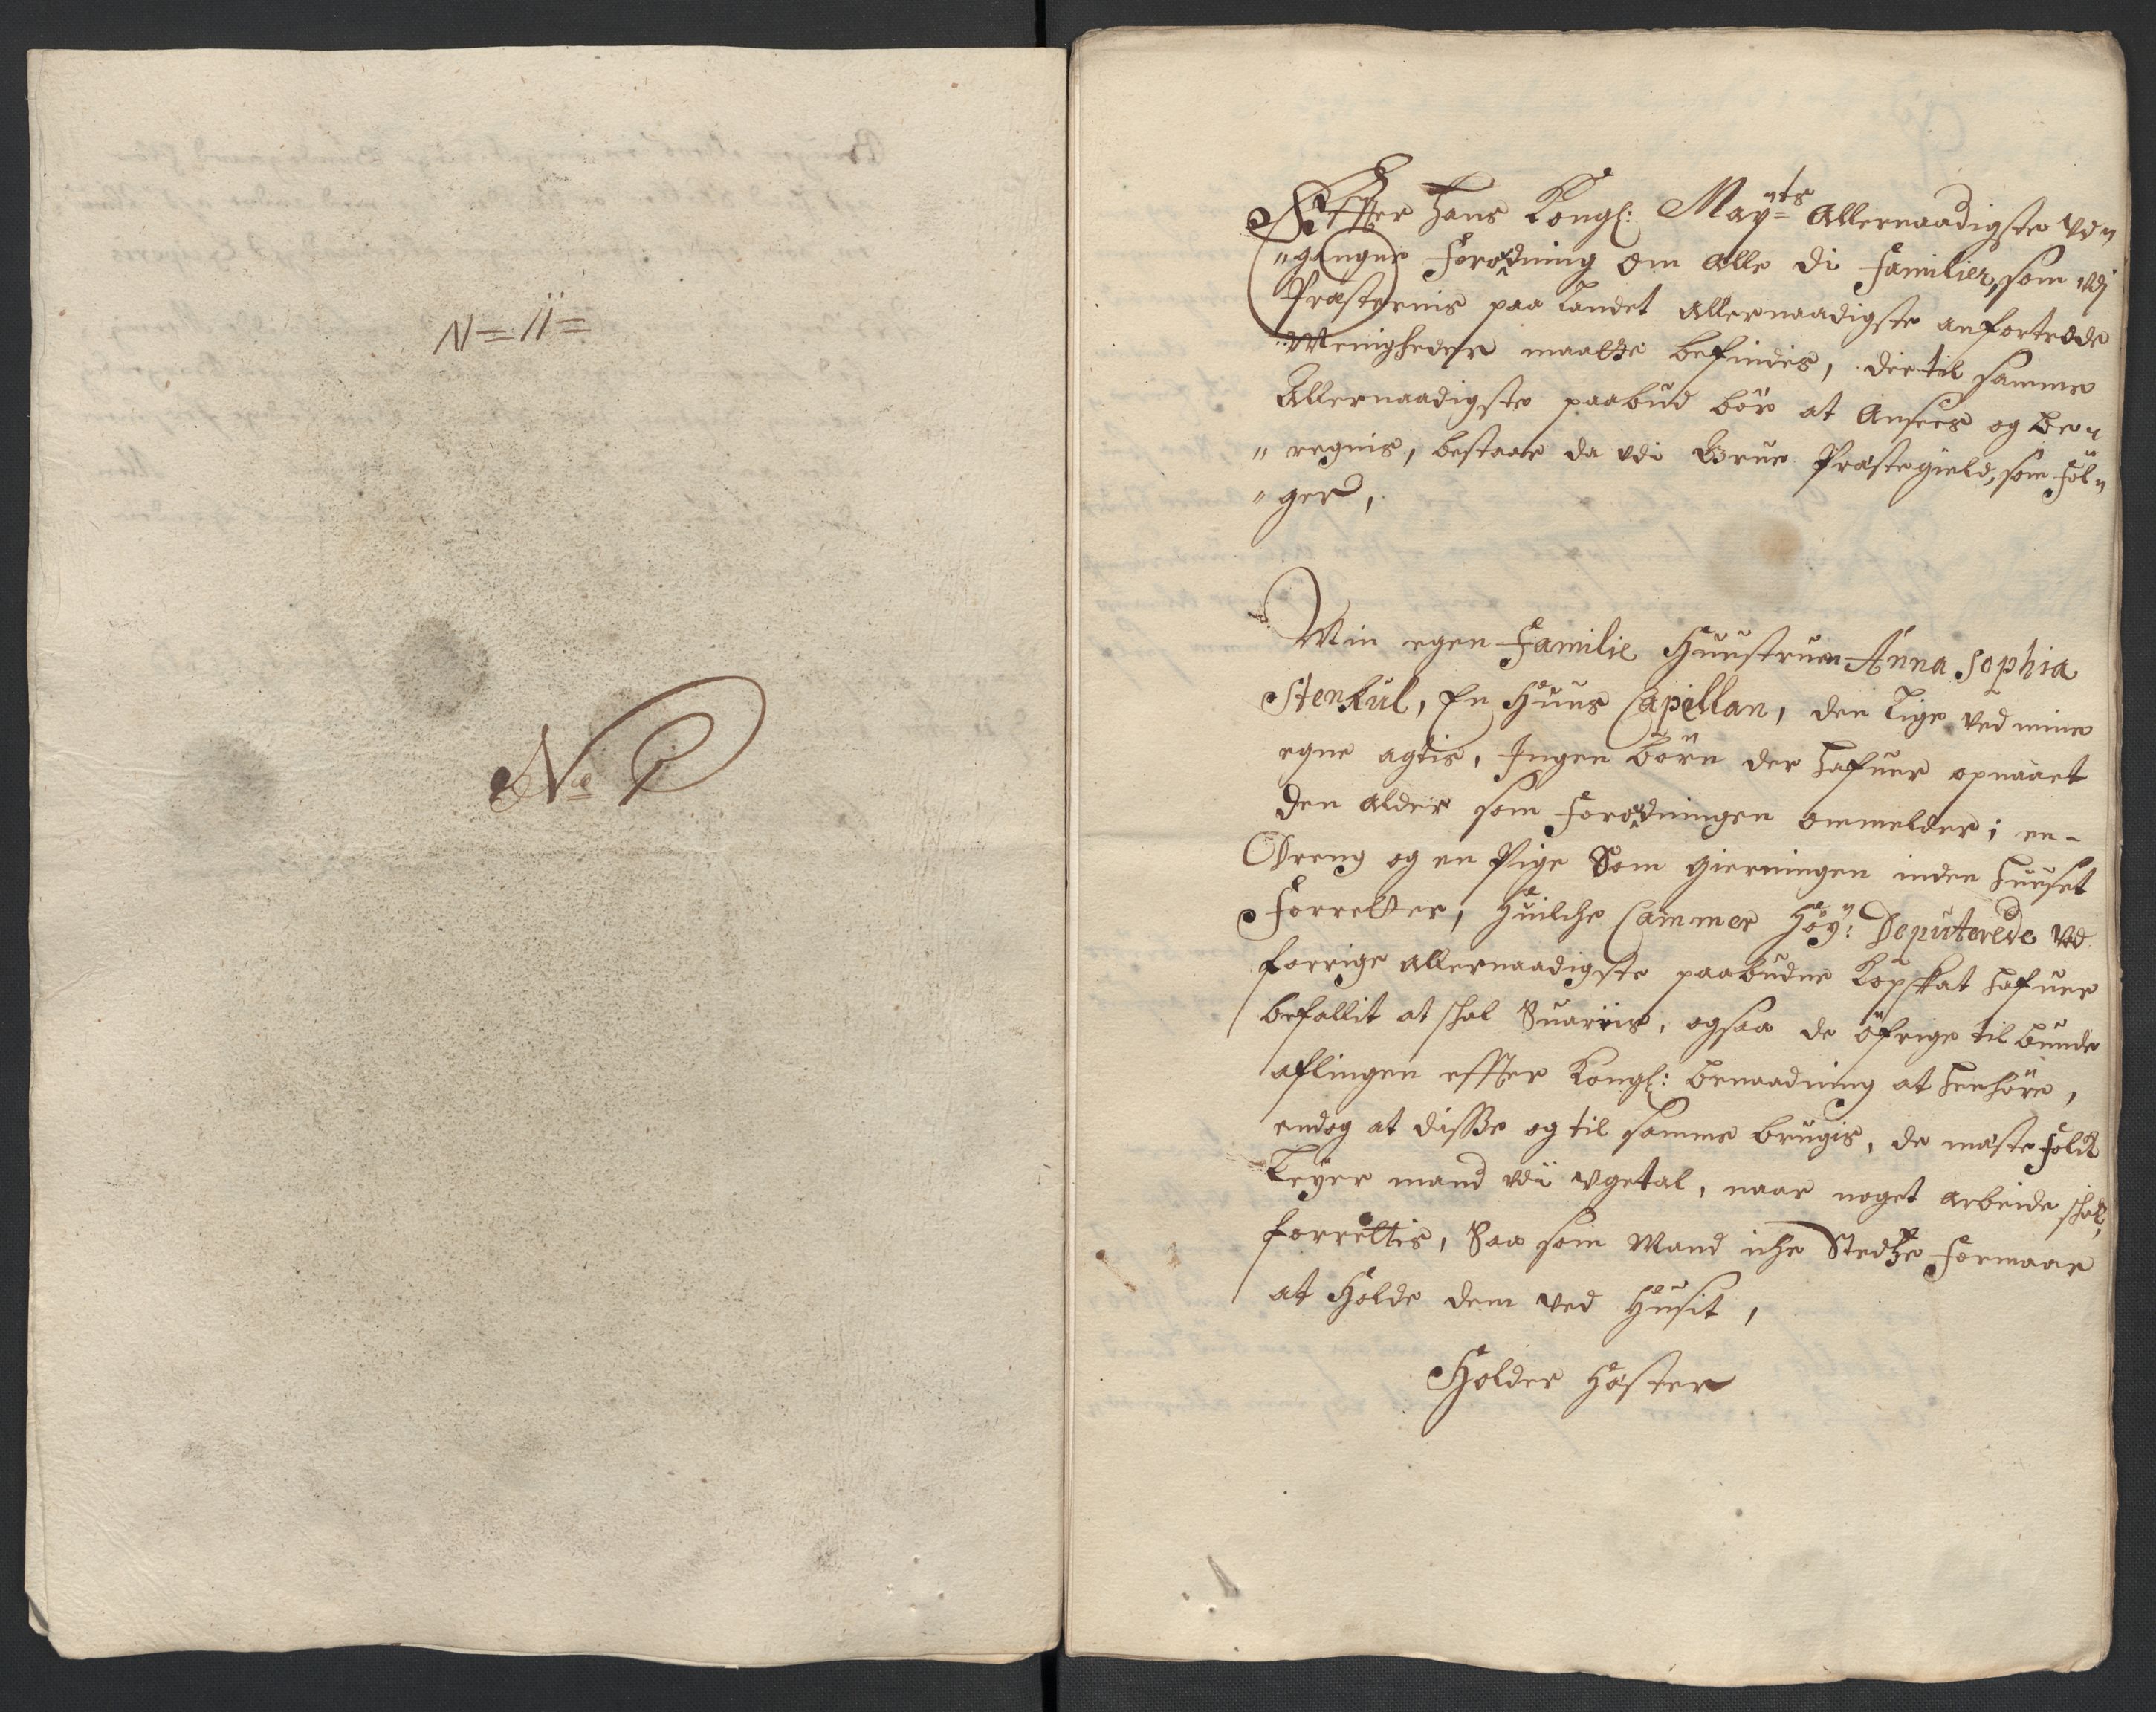 N= 11=
No 1
Effter Hans Kongl: Mayts Allernaadigste vd„
„gangne Forordning Om Alle di Familier, som vdj
Præsternis paa Landet Allernaadigste anfortrode
Menigheder maatte befindes, der til samme
Allernaadigste paabud bör at Ansees og be„
„regnis, bestaar da vdi Grue Præstegield, som föl„
„ger,
Min egen Familie Huustruen Anna Sophia
Stenkul, En Huus Capellan, den Lige ved mine
egne agtis, Ingen börn der hafuer opnaaet
den Alder som Forordningen ommelder; en
Dreng og en Pige Som gierningen inden Huuset
Forretter, Huilche Cammer Höy: Deputerede ved
forrige allernaadigste paabudne Kopskat hafuer
befallit at shal Suariis, ogsaa de öfrige til bunde
aflingen effter Kongl: benaadning at henhöre,
endog at disse og til samme brugis, de mæste Folk
Leyer mand vdi vgetal, naar noget arbeide shal
forrettis, Saa som Mand iche Stedtze Formaar
at Holde dem ved Husit,
Holder Hæster